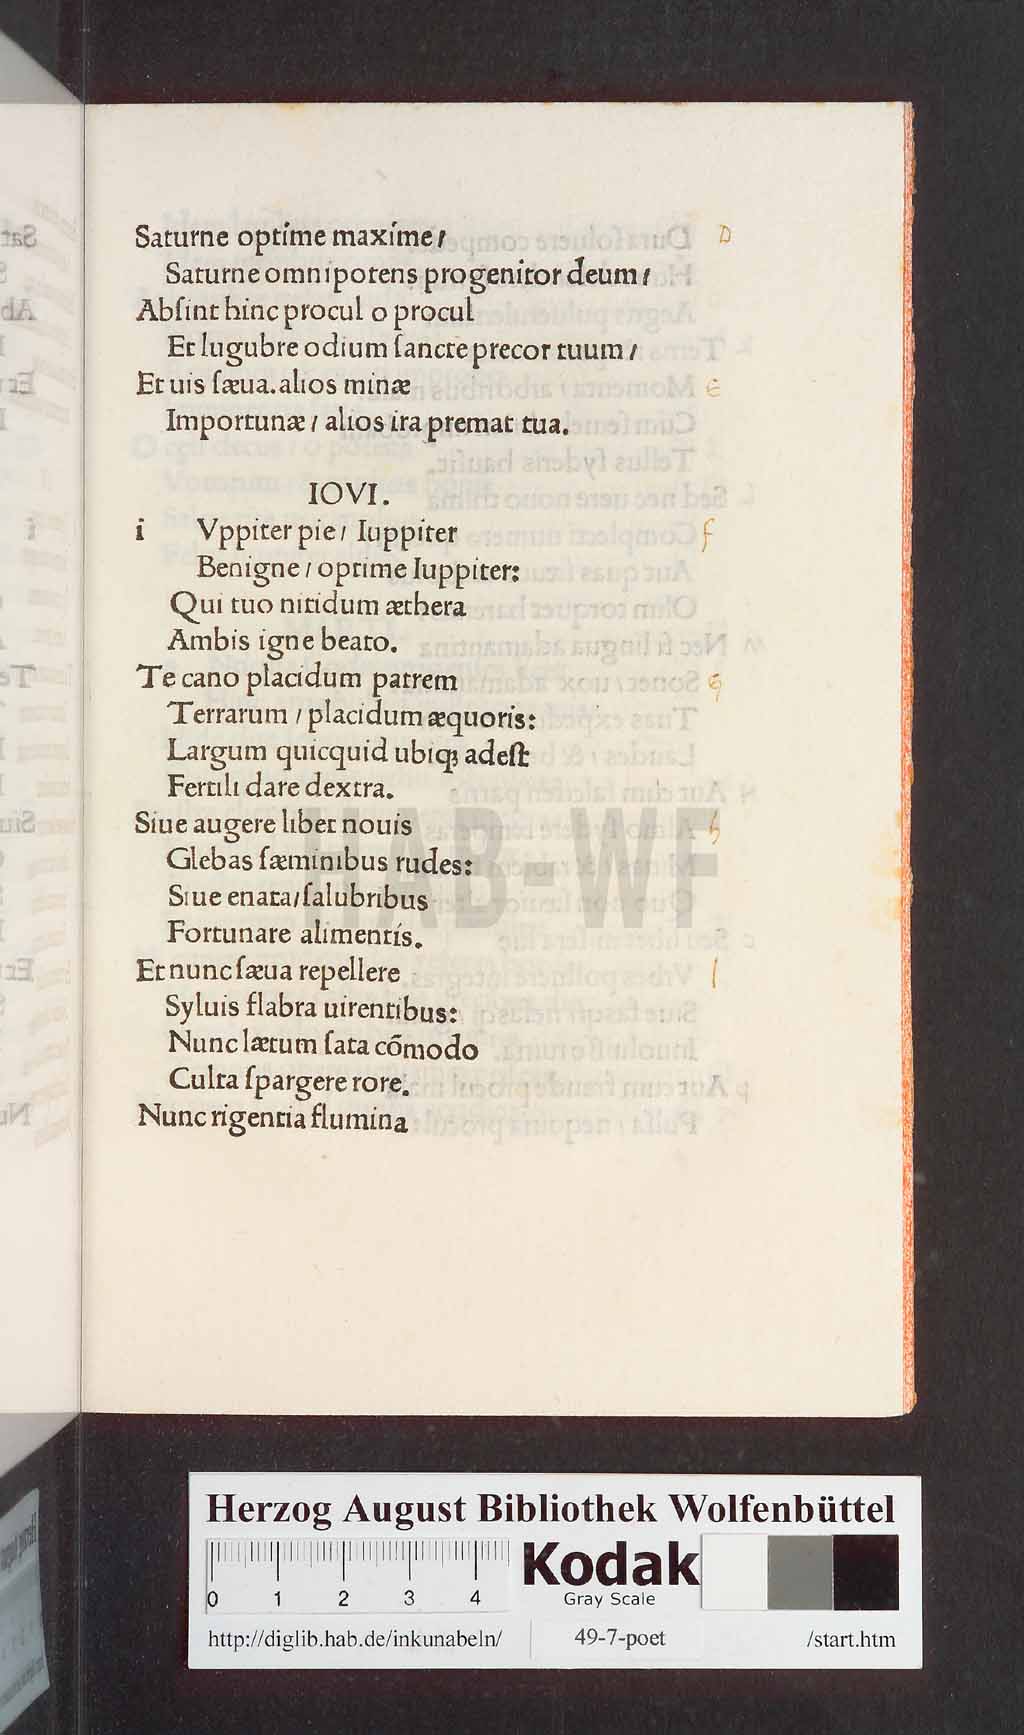 Saturne optime maxime/ D
Saturne omnipotens progenitor deum/
Abſint hinc procul o procul
Et lugubre odium ſancte precor tuum/
Et uis ſæua. alios minæ e
Importunæ / alios ira premat tua.
IOVI.
i Vppiter pie/ Iuppiter f
Benigne / optime Iuppiter:
Qui tuo nitidum æthera
Ambis igne beato.
Te cano placidum patrem g
Terrarum / placidum æquoris:
Largum quicquid ubiqꝫ adeſt
Fertili dare dextra.
Siue augere libet nouis h
Glebas ſæminibus rudes:
Siue enata/ſalubribus
Fortunare alimentís.
Et nunc ſæua repellere
Syluis flabra uirentibus:
Nunc lætum ſata cōmodo
Culta ſpargere rore.
Nunc rigentia flumina
HAB-WF
Herzog August Bibliothek Wolfenbüttel
0 1 2 3 4
Kodak
Gray Scale
http://diglib.hab.de/inkunabeln/ 49-7-poet /start.htm